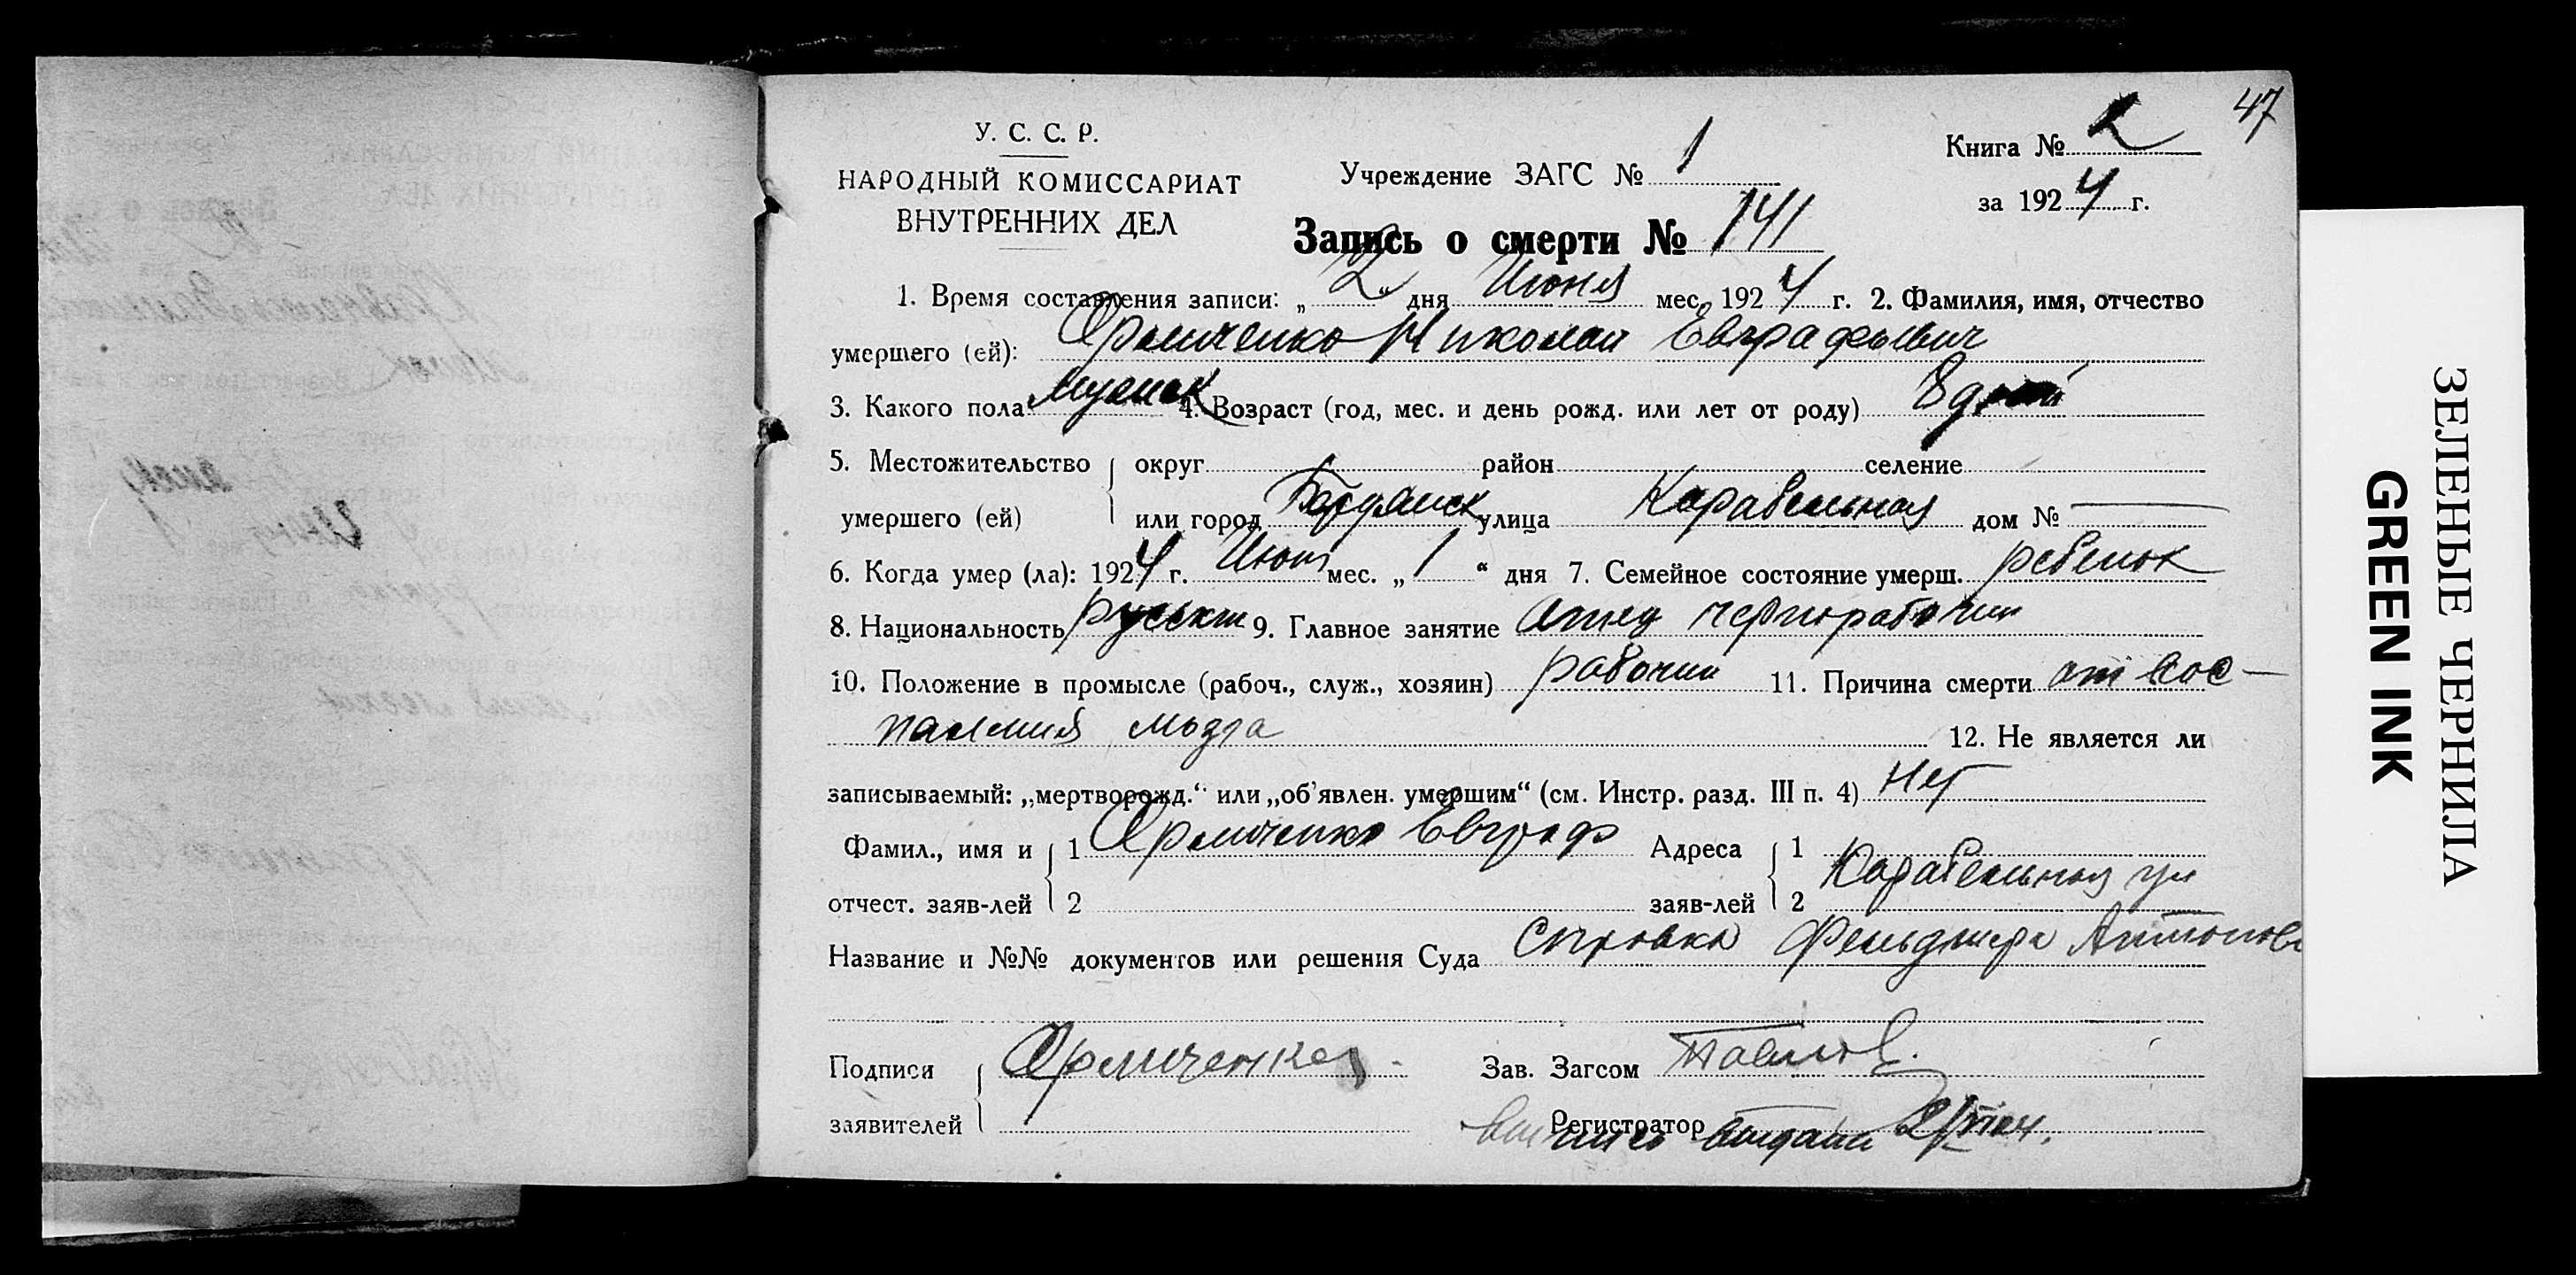 47
У. С. С. Р.
НАРОДНЫЙ КОМИССАРИАТ
ВНУТРЕННИХ ДЕЛ
Учреждение ЗАГС № 1
Книга № 2
за 1924 г.
Запись о смерти № 141
1. Время составления записи: „2“ дня Июня мес. 1924 г. 2. Фамилия, имя, отчество
умершего (ей): Николай Евграфович
3. Какого пола мужск 4. Возраст (год, мес. и день рожд. или лет от роду) 8 дней
5. Местожительство округ район селение
умершего (ей) или город Бердянск улица Карабельная дом № —
6. Когда умер (ла): 1924 г. Июня мес. „1“ дня 7. Семейное состояние умерш. ребенок
8. Национальность русский 9. Главное занятие отец чернорабочий
10. Положение в промысле (рабоч., служ., хозяин) рабочий 11. Причина смерти от вос-
паления мозга 12. Не является ли
записываемый: „мертворожд.“ или „об’явлен. умершим“ (см. Инстр. разд. III п. 4) Нет
Фамил., имя и 1 Евграф Адреса 1
отчест. заяв-лей 2 заяв-лей 2 Карабельная ул
Название и №№ документов или решения Суда Справка Фельдшера
Подписи Зав. Загсом
заявителей Регистратор
выдана
ЗЕЛЕНЫЕ ЧЕРНИЛА
GREEN INK